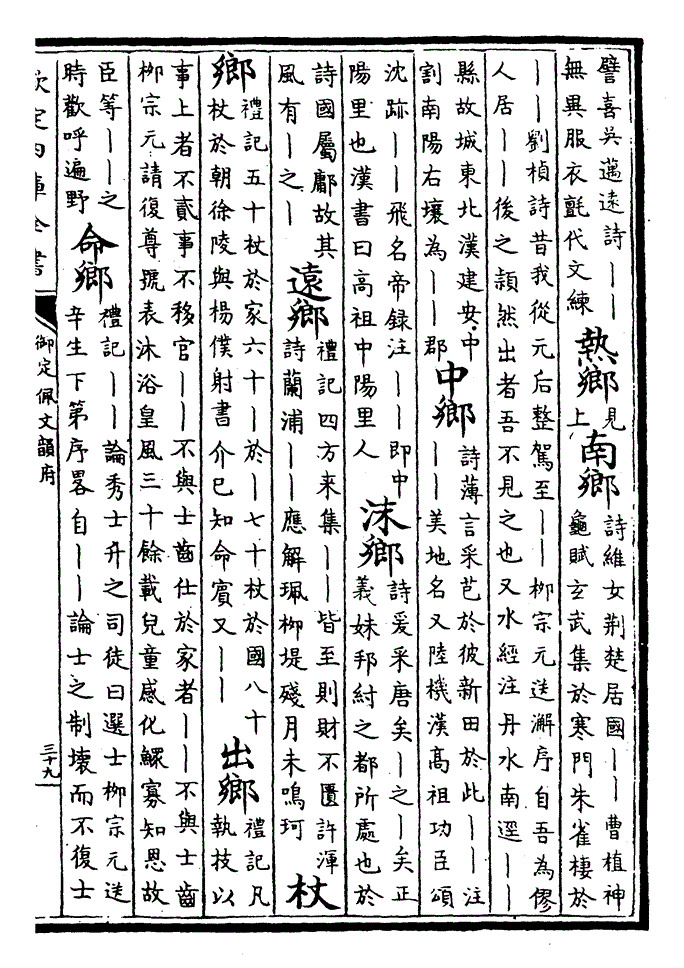 譬喜吳邁遠詩丨丨
無異服衣氈代文練
熱鄉
見
上
南鄉
詩維女荆楚居國丨丨曹植神
龜賦玄武集於寒門朱雀棲於
丨丨劉楨詩昔我從元后整駕至丨丨柳宗元送澥序自吾為僇
人居丨丨後之頴然出者吾不見之也又水經注丹水南逕丨丨
縣故城東北漢建安中
割南陽右壤為丨丨郡
中鄉
詩薄言采芑於彼新田於此丨丨注
丨丨美地名又陸機漢高祖功臣頌
沈跡丨丨飛名帝録注丨丨即中
陽里也漢書曰高祖中陽里人
沬鄉
詩爰采唐矣丨之丨矣正
義妹邦紂之都所處也於
詩國屬鄘故其
風有丨之丨
遠鄉
禮記四方來集丨丨皆至則財不匱許渾
詩蘭浦丨丨應解珮柳堤殘月未鳴珂
杖
鄉
禮記五十杖於家六十丨於丨七十杖於國八十
杖於朝徐陵與楊僕射書介巳知命賓又丨丨
出鄉
禮記凡
執技以
事上者不貳事不移官丨丨不與士齒仕於家者丨丨不與士齒
柳宗元請復尊號表沐浴皇風三十餘載兒童感化鰥寡知恩故
臣等丨丨之
時歡呼遍野
命鄉
禮記丨丨論秀士升之司徒曰選士柳宗元送
辛生下第序畧自丨丨論士之制壞而不復士
欽定四庫全書
御定佩文韻府
三十九